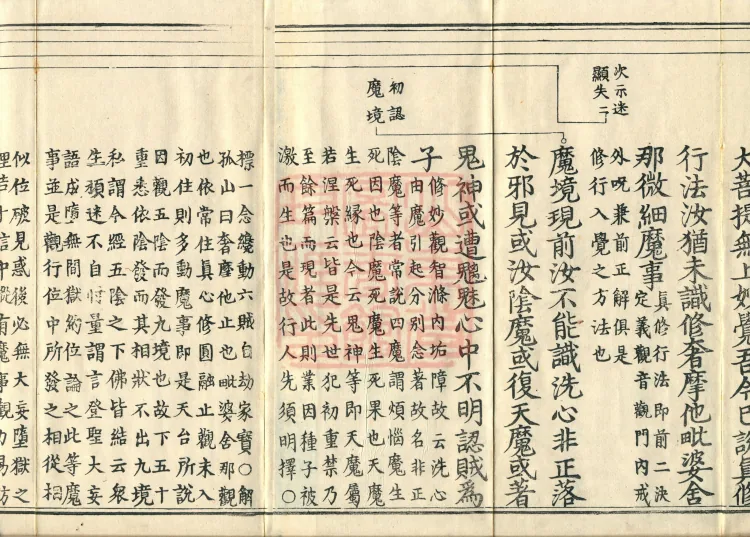 次示迷
顯失二
初認
魔境
大菩提無上妙覺吾今已說真修
行法汝猶未識修奢摩他毗婆舍
那微細魔事真修行法即前二決
定義觀音觀門內戒
外呪兼前正解俱是
修行入覺之方法也
魔境現前汝不能識洗心非正落
於邪見或汝陰魔或復天魔或著
鬼神或遭魑魅心中不明認賊為
子修妙觀智滌內垢障故云洗心
由魔引起分別念著故名非正
陰魔等者常說四魔謂煩惱魔生
死因也陰魔死魔生死果也天魔
生死緣也今云鬼神等即天魔屬
若涅槃云皆是先世犯初重禁乃
至餘篇而現者此則業因種子被
激而生也是故行人先須明擇○
標一念纔動六賊自劫家寶○解
孤山曰奢摩他止也毗婆舍那觀
也依常住真心修圓融止觀未入
初住則多動魔事即是天台所說
因觀五陰而發九境也故下五十
重悉依陰發而其相狀不出九境
私謂今經五陰之下佛皆結云眾
生頑迷不自忖量謂言登聖大妄
語成墮無間獄約位論之此等魔
事並是觀行位中所發之相從相
似位破見惑後必無大妄墮獄之